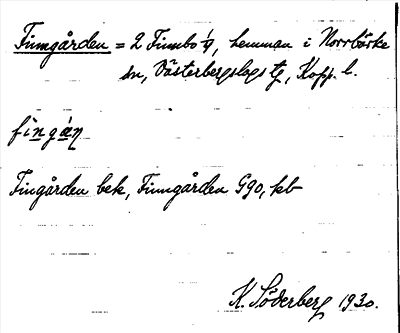 Finngården = 2 Finnbo 1/4, hemman i Norrbärke
sn, Västerbergslags tg, Kopp. l.
fìngán
Fingården bek, Finngården G90, kb
K. Söderberg 1930.